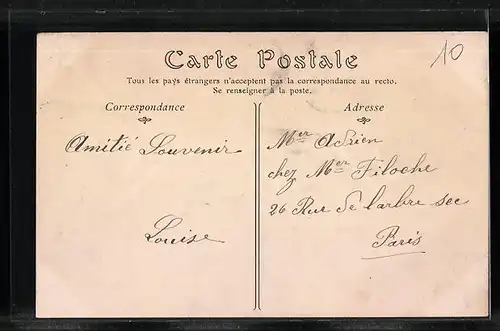 Carte Postale
10
Tous les pays étrangers n'acceptent pas la correspondance au recto.
Se renseigner à la poste.
Correspondance
Adresse
Amitié Souvenir
Louise
Mer Adrien
chez Mer Filoche
26 Rue de l'arbre sec
Paris